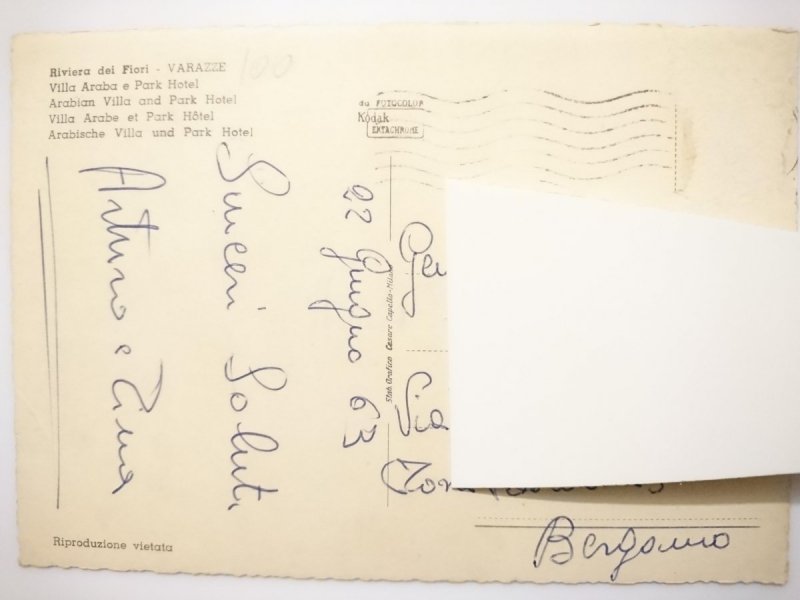 Riviera dei Fiori - VARAZZE
Villa Araba e Park Hotel
Arabian Villa and Park Hotel
Villa Arabe et Park Hôtel
Arabische Villa und Park Hotel
100
da FOTOCOLOR
Kodak
EKTACHROME
22 Giugno 63
Sinceri Saluti
Arturo e Tina
Stab. Grafico Cesare Capello - Milano
Bergamo
Riproduzione vietata